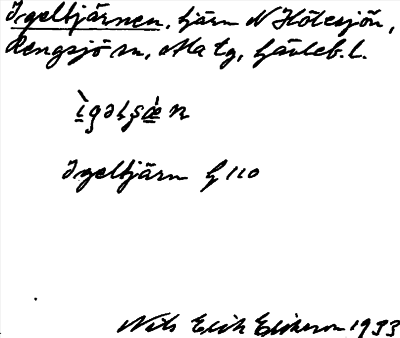 Igeltjärnen, tjärn N Hölesjön,
Rengsjö sn, Ala tg, Gävleb. l.
ìgəlʂæ̀n
Igeltjärn G 110
Nils Erik Eriksson 1933